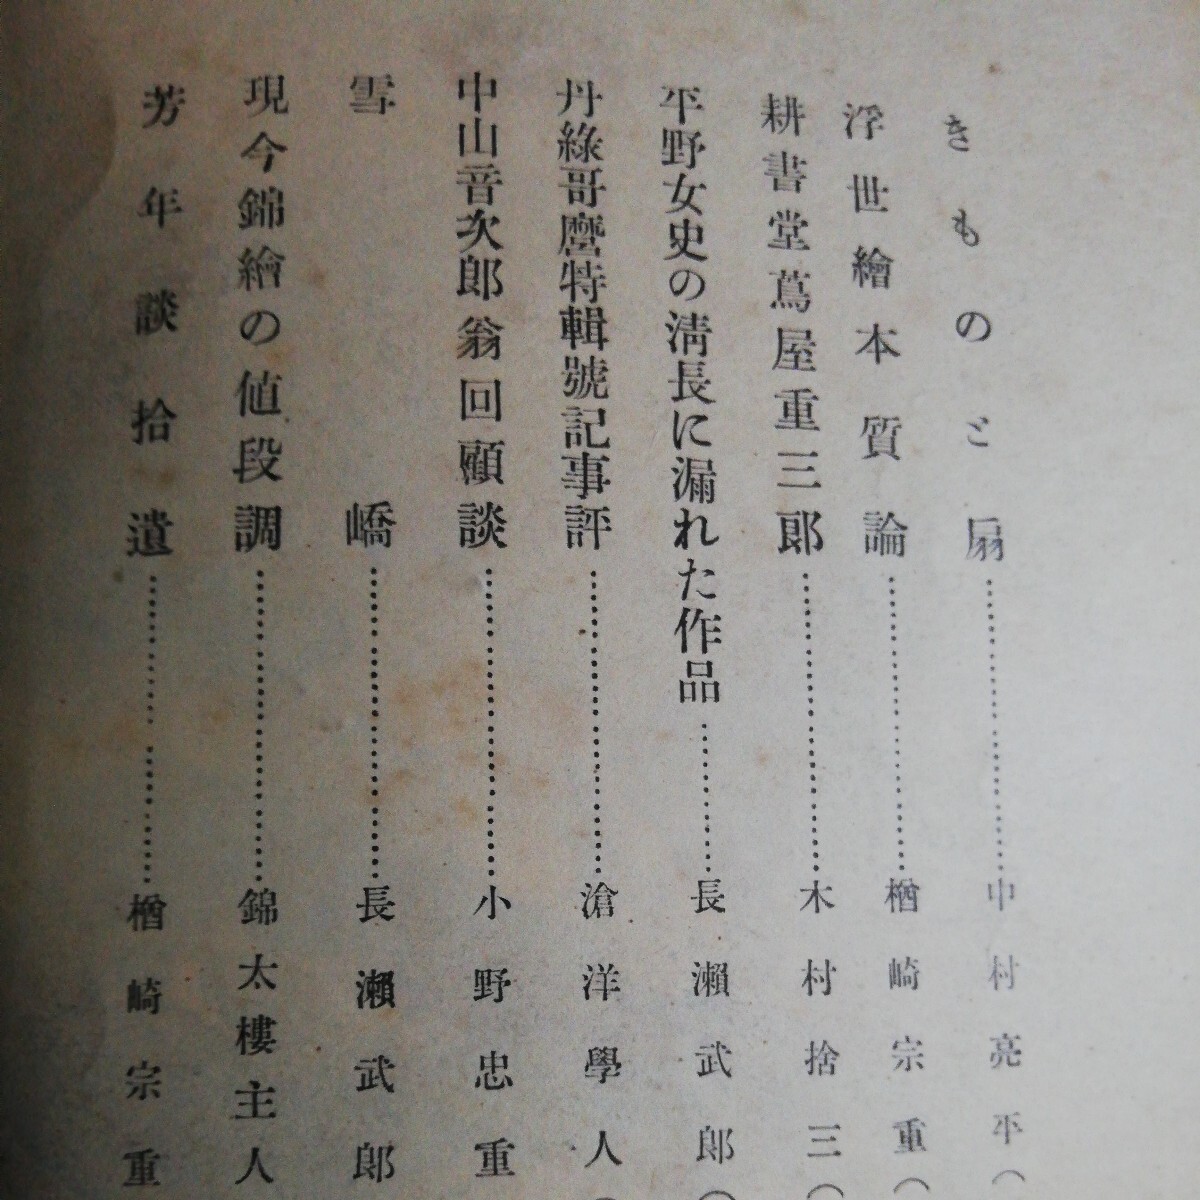 きものと扇……………………中村亮平（
浮世繪本質論……………………楢崎宗重（
耕書堂蔦屋重三郎……………………木村捨三（
平野女史の淸長に漏れた作品…………長瀨武郎（
丹綠哥麿特輯號記事評……………………滄洋學人（
中山音次郎翁回顧談……………………小野忠重
雪嶠……………………長瀨武郎
現今錦繪の値段調……………………錦太樓主人
芳年談拾遺……………………楢崎宗重